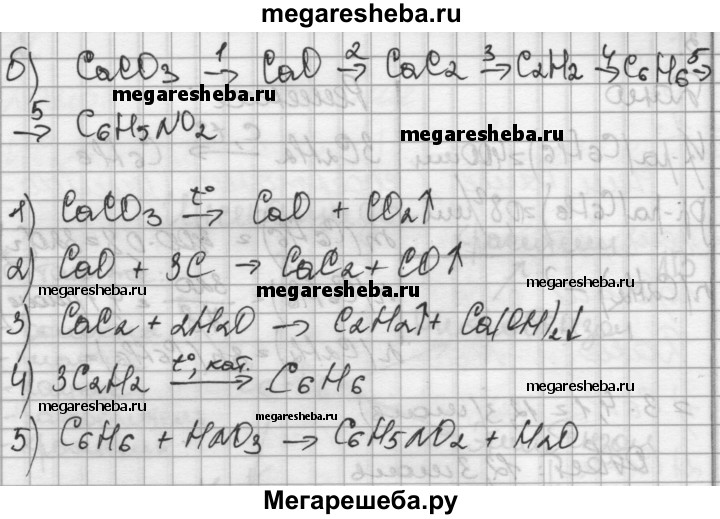 megaresheba.ru
б) CaCO3 1→ CaO 2→ CaC2 3→ C2H2 4→ C6H6 5→
megaresheba.ru megaresheba.ru
5→ C6H5NO2
1) CaCO3 t°→ CaO + CO2↑
2) CaO + 3C → CaC2 + CO↑
megaresheba.ru megaresheba.ru megaresheba.ru
3) CaC2 + 2H2O → C2H2↑ + Ca(OH)2↓
4) 3C2H2 t°, кат.→ C6H6
megaresheba.ru megaresheba.ru megaresheba.ru
5) C6H6 + HNO3 → C6H5NO2 + H2O
Мегарешеба.ру